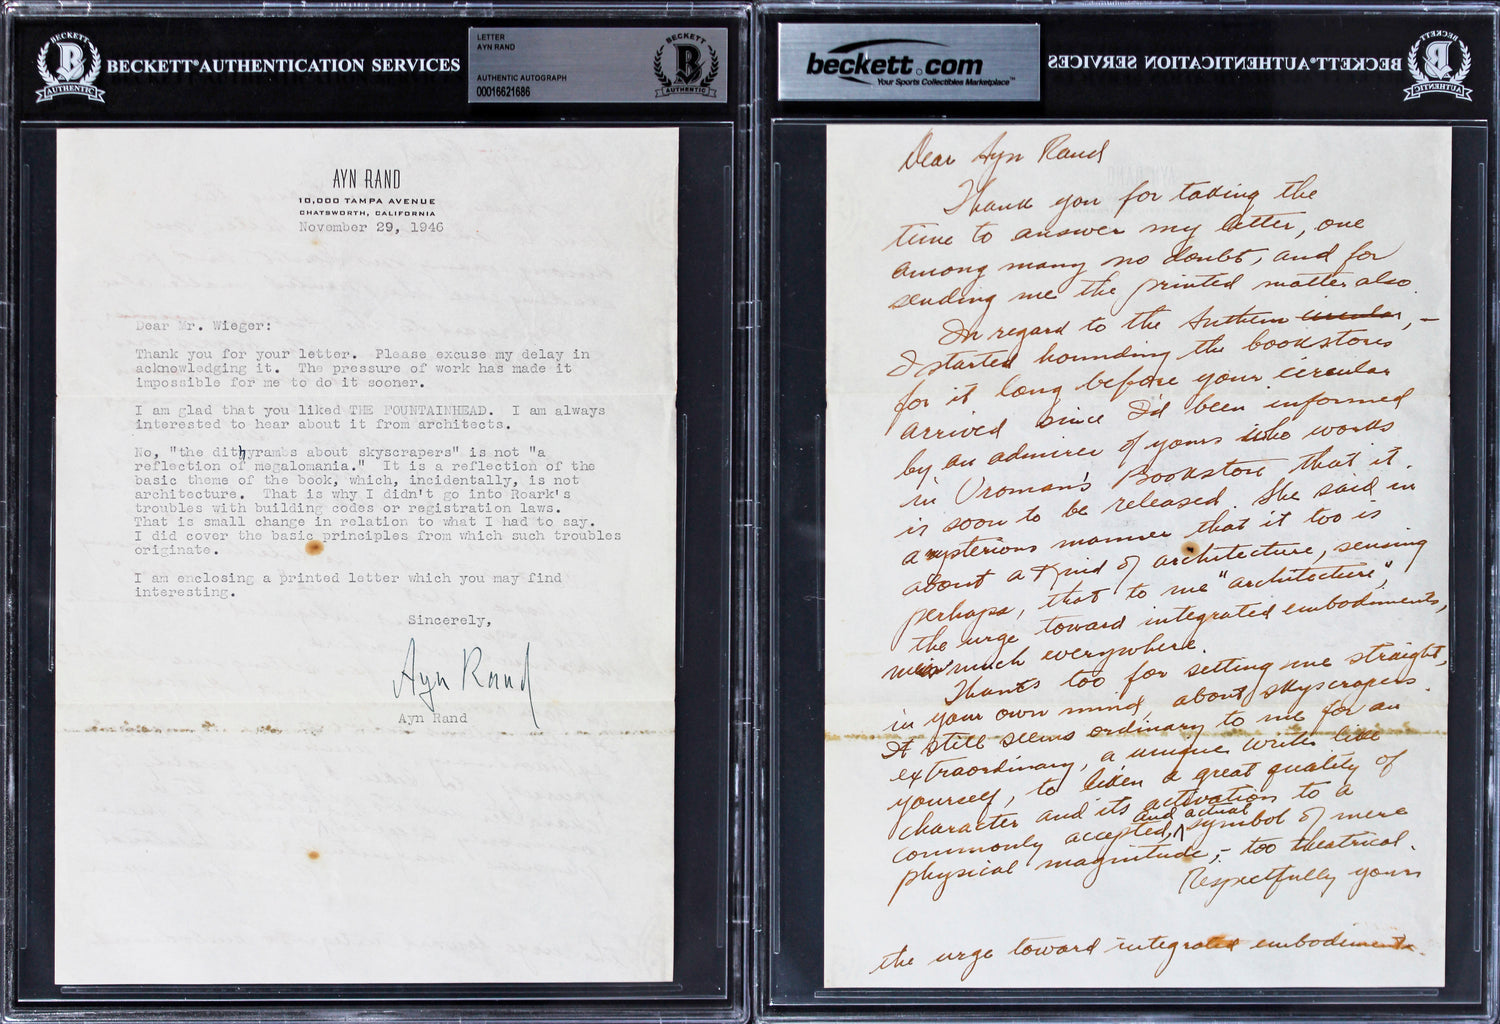 BECKETT AUTHENTIC
BECKETT® AUTHENTICATION SERVICES
LETTER
AYN RAND
AUTHENTIC AUTOGRAPH
00016621686
BECKETT AUTHENTIC
AYN RAND
10,000 TAMPA AVENUE
CHATSWORTH, CALIFORNIA
November 29, 1946
Dear Mr. Wieger:
Thank you for your letter. Please excuse my delay in
acknowledging it. The pressure of work has made it
impossible for me to do it sooner.
I am glad that you liked THE FOUNTAINHEAD. I am always
interested to hear about it from architects.
No, "the dithyrambs about skyscrapers" is not "a
reflection of megalomania." It is a reflection of the
basic theme of the book, which, incidentally, is not
architecture. That is why I didn't go into Roark's
troubles with building codes or registration laws.
That is small change in relation to what I had to say.
I did cover the basic principles from which such troubles
originate.
I am enclosing a printed letter which you may find
interesting.
Sincerely,
Ayn Rand
Ayn Rand
beckett.com
Your Sports Collectibles Marketplace™
BECKETT® AUTHENTICATION SERVICES
BECKETT AUTHENTIC
Dear Ayn Rand
Thank you for taking the
time to answer my letter, one
among many no doubt, and for
sending me the printed matter also.
In regard to the Anthem circular, –
I started hounding the bookstores
for it long before your circular
arrived since I'd been informed
by an admirer of yours who works
in Vroman's Bookstore that it
is soon to be released. She said in
a mysterious manner that it too is
about a kind of architecture, sensing
perhaps, that to me "architecture",
the urge toward integrated embodiments,
much everywhere.
Thanks too for setting me straight,
in your own mind, about skyscrapers.
It still seems ordinary to me for an
extraordinary, a unique writer like
yourself, to liken a great quality of
character and its activation to a
commonly accepted, and actual symbol of mere
physical magnitude, – too theatrical.
Respectfully yours
the urge toward integrated embodiments.